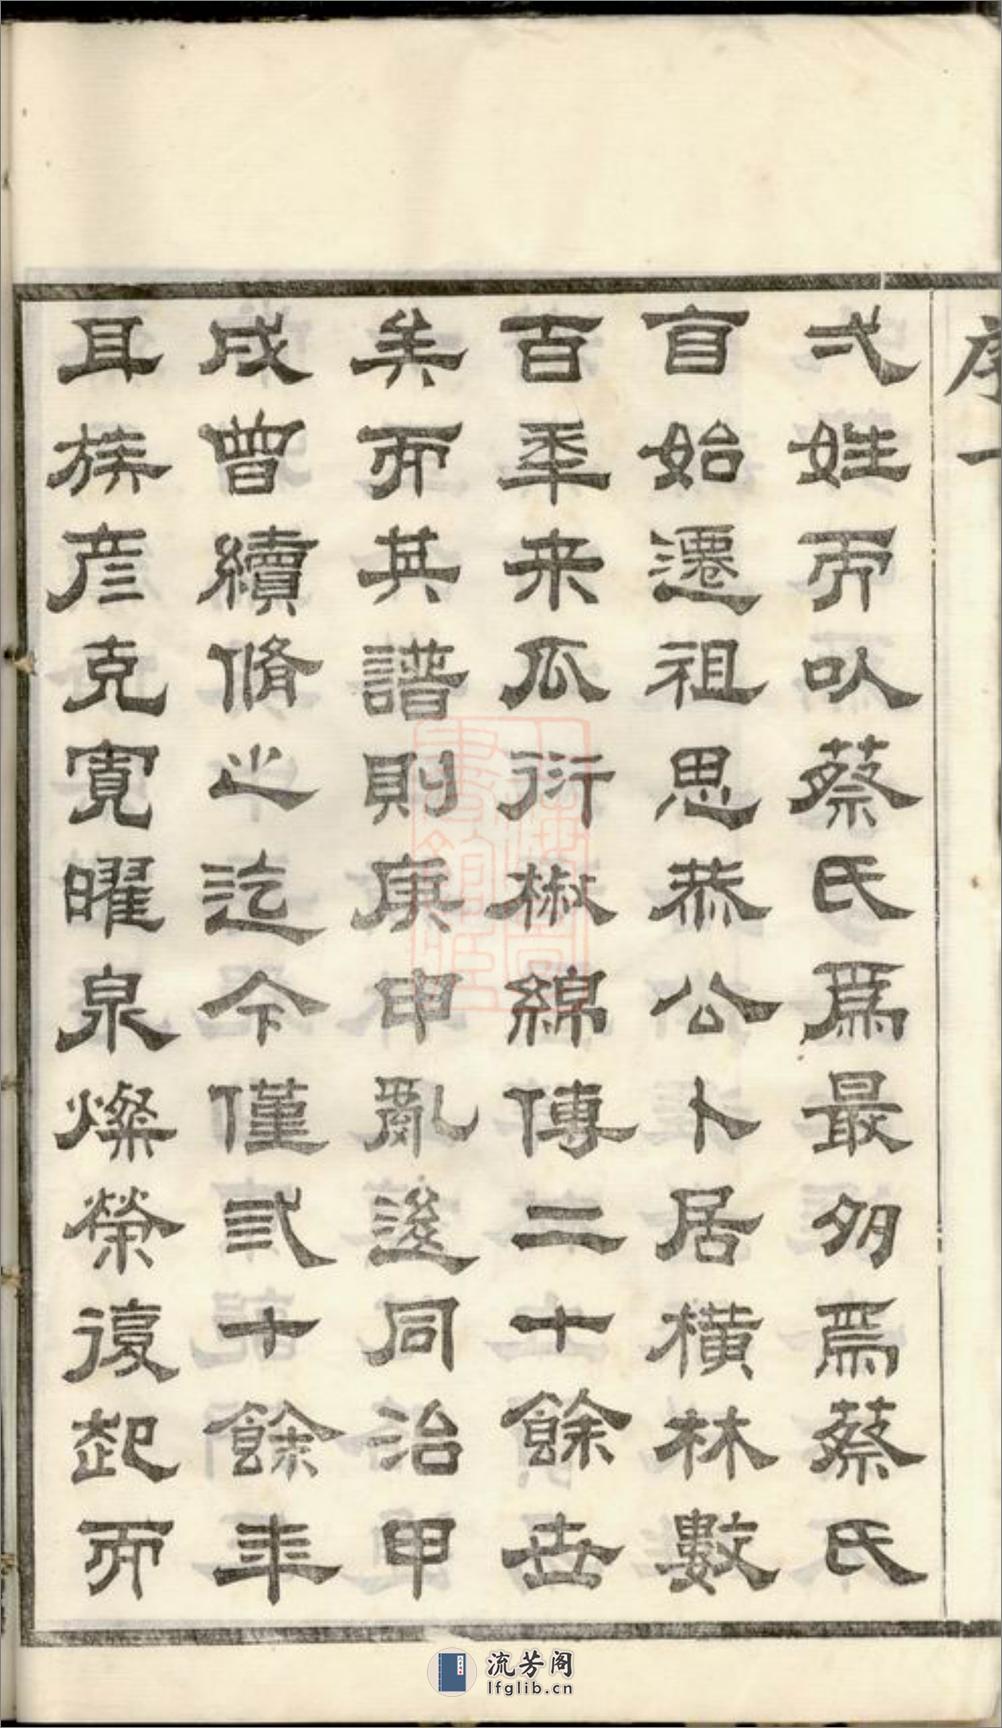 序一
弌姓而以蔡氏爲最多爲蔡氏
自始遷祖思恭公卜居橫林數
百年来瓜衍椒綿傳二十餘世
矣而其譜則庚申亂後同治甲
戌曾續脩之迄今僅弍十餘年
耳族彦克寬曜泉燦榮復起而
流芳阁
lfglib.cn